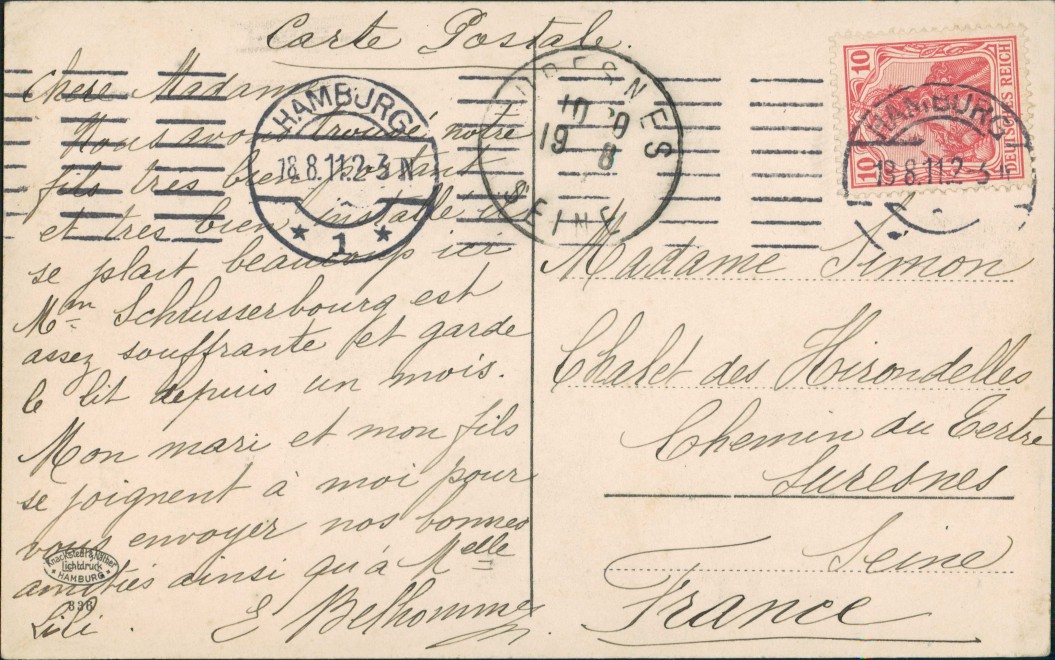 Carte Postale.
Chere Madame
Nous avons trouvé notre
fils tres bien portant
et tres bien installé il
se plait beaucoup ici
Mm Schlusserbourg est
assez souffrante et garde
le lit depuis un mois.
Mon mari et mon fils
se joignent à moi pour
vous envoyer nos bonnes
amitiés ainsi qu'à Melle
Lili.
E Belhomme
Knackstedt & Näther
Lichtdruck
* HAMBURG *
836
HAMBURG
18.8.11.2-3 N
* 1 *
SURESNES
10 30
19 8
SEINE
10
10
DEUTSCHES REICH
HAMBURG
18.8.11.2-3 N
Madame Simon
Chalet des Hirondelles
Chemin du Tertre
Suresnes
Seine
France